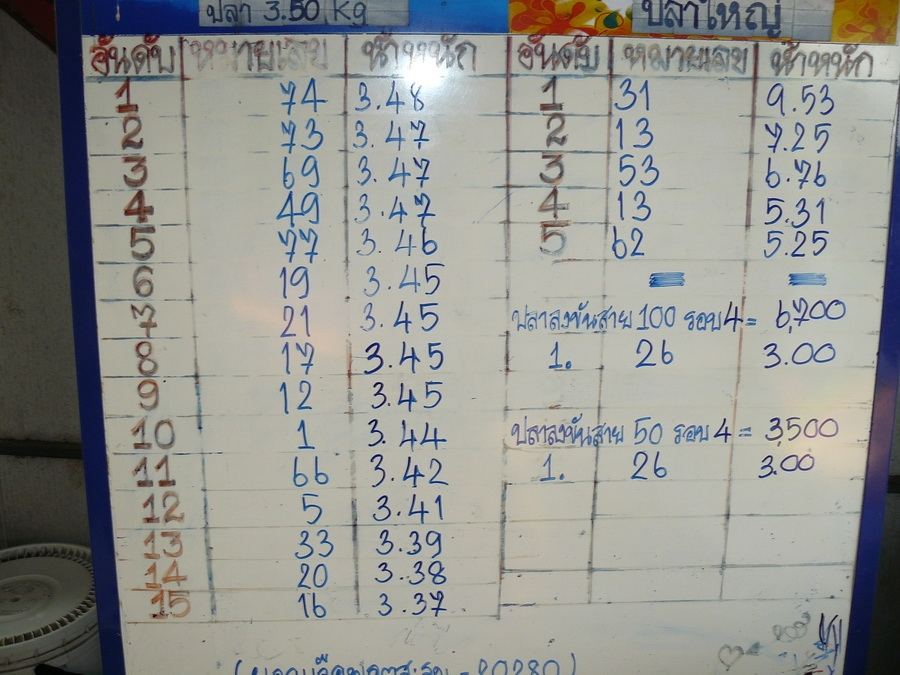 ปลา 3.50 kg
อันดับ หมายเลข น้ำหนัก
1 74 3.48
2 73 3.47
3 69 3.47
4 49 3.47
5 77 3.46
6 19 3.45
7 21 3.45
8 17 3.45
9 12 3.45
10 1 3.44
11 66 3.42
12 5 3.41
13 33 3.39
14 20 3.38
15 16 3.37
ปลาใหญ่
อันดับ หมายเลข น้ำหนัก
1 31 9.53
2 13 7.25
3 53 6.76
4 13 5.31
5 62 5.25
ปลาลงขันสาย 100 รอบ 4 = 6,700
1. 26 3.00
ปลาลงขันสาย 50 รอบ 4 = 3,500
1. 26 3.00